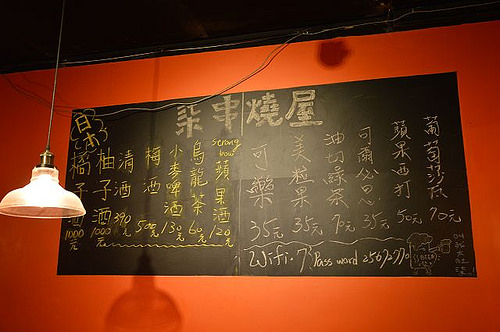 柒串燒屋
日本
橘子酒 1000元
柚子酒 1000元
清酒 390元
梅酒 500元
小麥啤酒 130元
烏龍茶 60元
strong bow 蘋果酒 120元
可樂 35元
美粒果 35元
油切綠茶 70元
可爾必思 35元
蘋果西打 50元
葡萄沙瓦 70元
Wifi - 7 Pass word